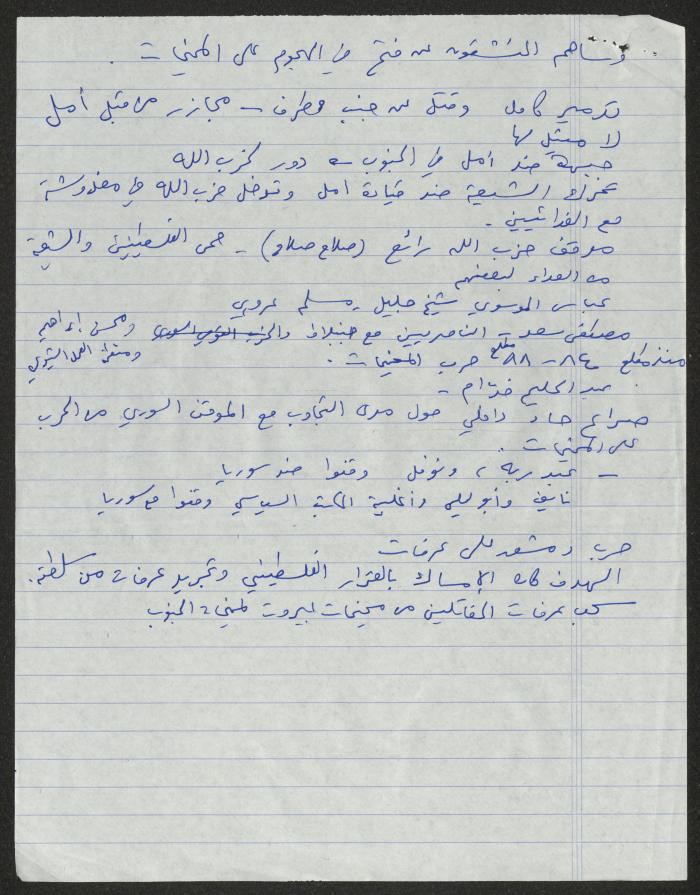 وساهم المنشقون عن فتح في الهجوم على المخيمات .
تدمير كامل وقتل عن جنب وطرف - مجازر من قبل أمل
لا مثيل لها
جبهة ضد أمل في الجنوب - دور لحزب الله
تحرك الشيعة ضد قيادة امل وتدخل حزب الله في مغدوشة
مع الفدائيين .
موقف حزب الله رائع (صلاح صلاح) - حمى الفلسطينيين والشيعة
من العداء لبعضهم
عباس الموسوي شيخ جليل - مسلم عروبي
مصطفى سعد - الناصريين مع جنبلاط والحزب القومي السوري ومحسن إبراهيم
ومنظمة العمل الشيوعي
منذ مطلع ٨٤ - مطلع ٨٨ حرب المخيمات .
عبد الحليم خدام -
صراع حاد داخلي حول مدى التجاوب مع الموقف السوري من الحرب
على المخيمات .
- عبد ربه ، ونوفل وقفوا ضد سوريا
نايف وأبو ليلى وأغلبية المكتب السياسي وقفوا مع سوريا
حرب دمشق على عرفات
الهدف كان الإمساك بالقرار الفلسطيني وتجريد عرفات من سلطته .
سحب عرفات المقاتلين من مخيمات بيروت لمخيمات الجنوب